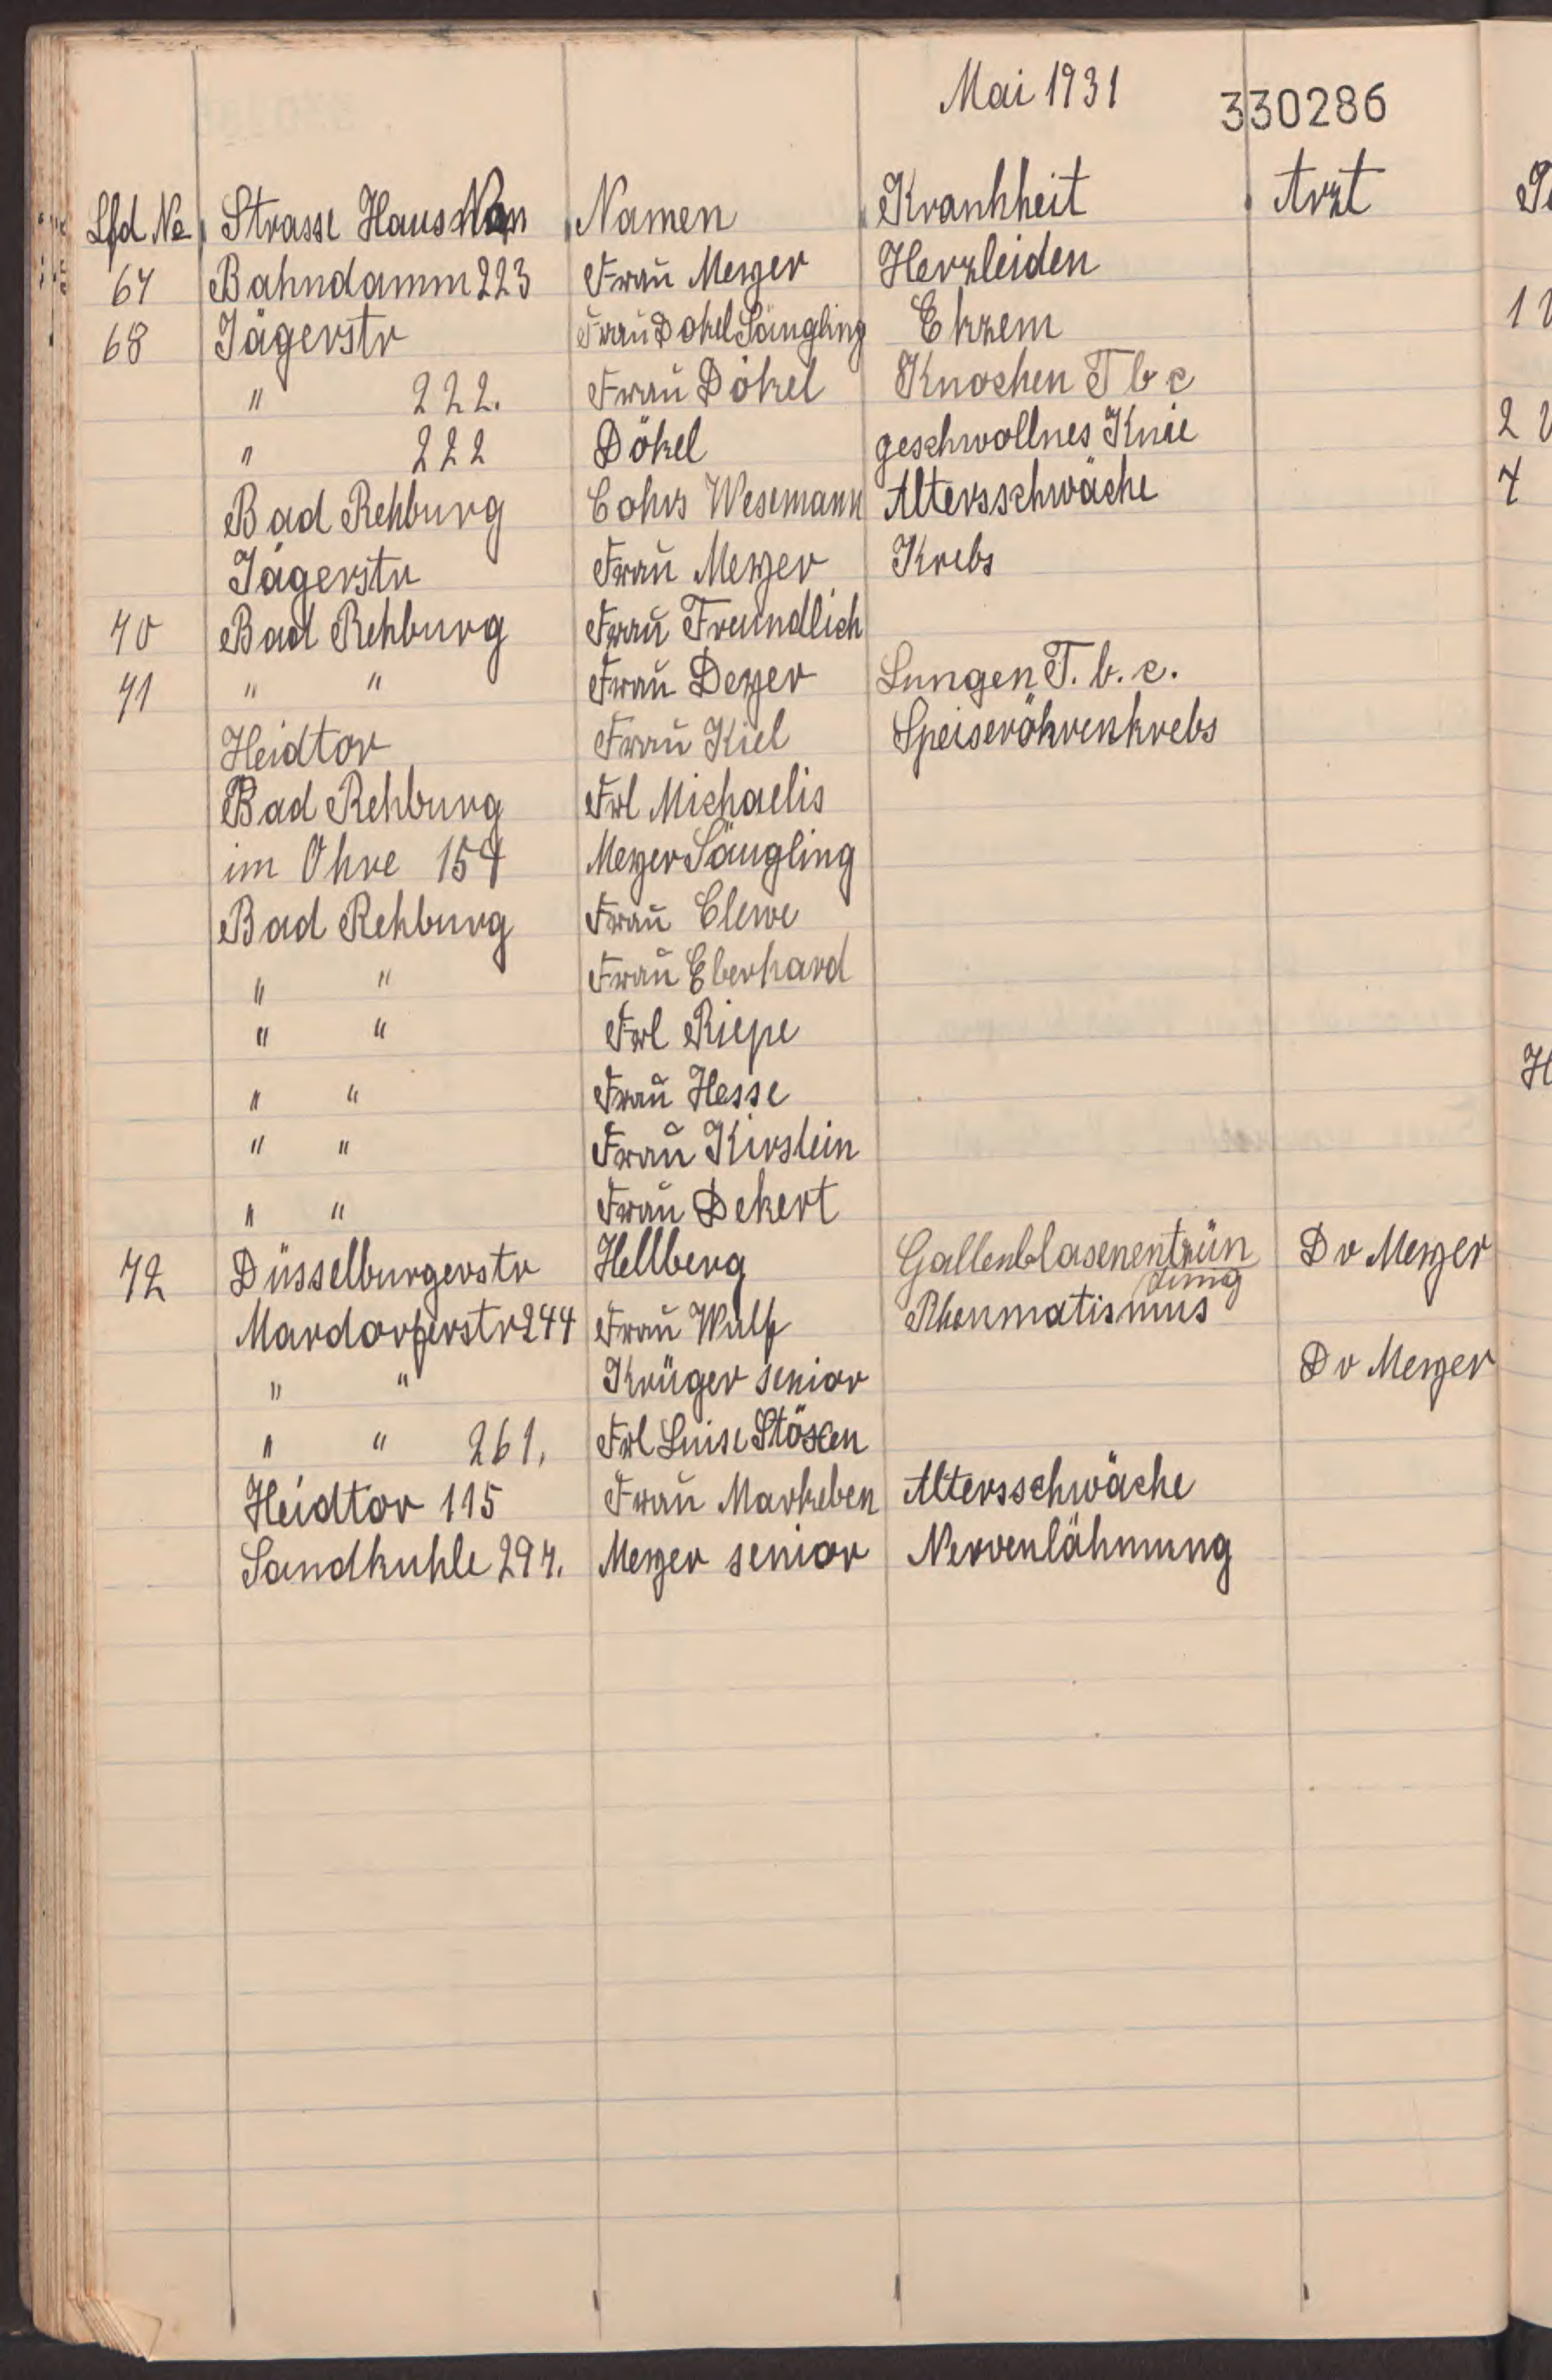 Mai 1931
330286
Lfd Nr Strasse Haus Namen Krankheit Arzt
67 Bahndamm 223 Frau Meyer Herzleiden
68 Jägerstr Frau Dökel Säugling Ekzem
" 222. Frau Dökel Knochen Tbc
" 222 Dökel geschwollnes Knie
Bad Rehburg Cohrs Wesemann Altersschwäche
Jägerstr Frau Meyer Krebs
70 Bad Rehburg Frau Freundlich
71 " " Frau Deyer Lungen T.b.c.
Heidtor Frau Kiel Speiseröhrenkrebs
Bad Rehburg Frl Michaelis
im Ohre 154 Meyer Säugling
Bad Rehburg Frau Clewe
" " Frau Eberhard
" " Frl Riepe
" " Frau Hesse
" " Frau Kirstein
" " Frau Dekert
72 Düsselburgerstr Hellberg Gallenblasenentzün Dr Meyer
dung
Mardorferstr 244 Frau Wulf Rheumatismus
" " Krüger senior Dr Meyer
" " 261. Frl Luise Stöxen
Heidtor 115 Frau Markeben Altersschwäche
Sandkuhle 297. Meyer senior Nervenlähmung